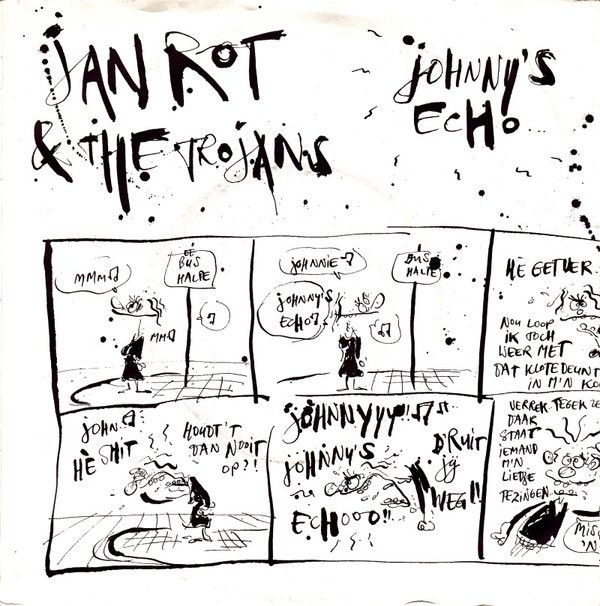 JAN ROT
& THE TROJANS
JOHNNY'S
ECHO
MMM
DE
BUS
HALTE
MM
JOHNNIE
JOHNNY'S
ECHO
BUS
HALTE
HÈ GETVER
NOU LOOP
IK TOCH
WEER MET
DAT KLOTE DEUNT
IN M'N KO
JOHN
HÈ SHIT
HOUDT 'T
DAN NOOIT
OP?!
JOHNNYYY
JOHNNY'S
ECHOOO!!
D'RUIT
WEG!!
VERREK TEGEK ZE
DAAR
STAAT
IEMAND
M'N
LIEDJE
TE ZINGEN
MIS
'N